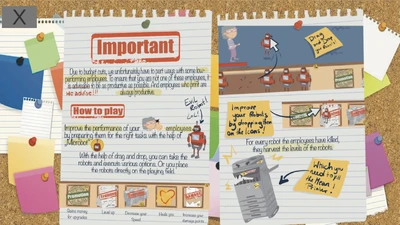 X
Important
Due to budget cuts, we unfortunately have to part ways with some low
performing employees. To ensure that you are not one of these employees, it
is advisable to be as productive as possible. And employees who print are
always productive.
How to play
Evil
Robot!
LoL!
Improve the performance of your employees
by preparing them for the right tasks with the help of
With the help of drag and drop, you can take the
robots and execute various actions. Or you place
the robots directly on the playing field.
for upgrades
Level up
Decrease your
Speed
Heals you
Increases your
damage points
Drag
and Drop
Robots
Improve
your Robots
by dropping them
on the Icons!
For every robot the employees have killed,
they harvest the levels of the robots.
Which you
need to
the Mean
Printer!